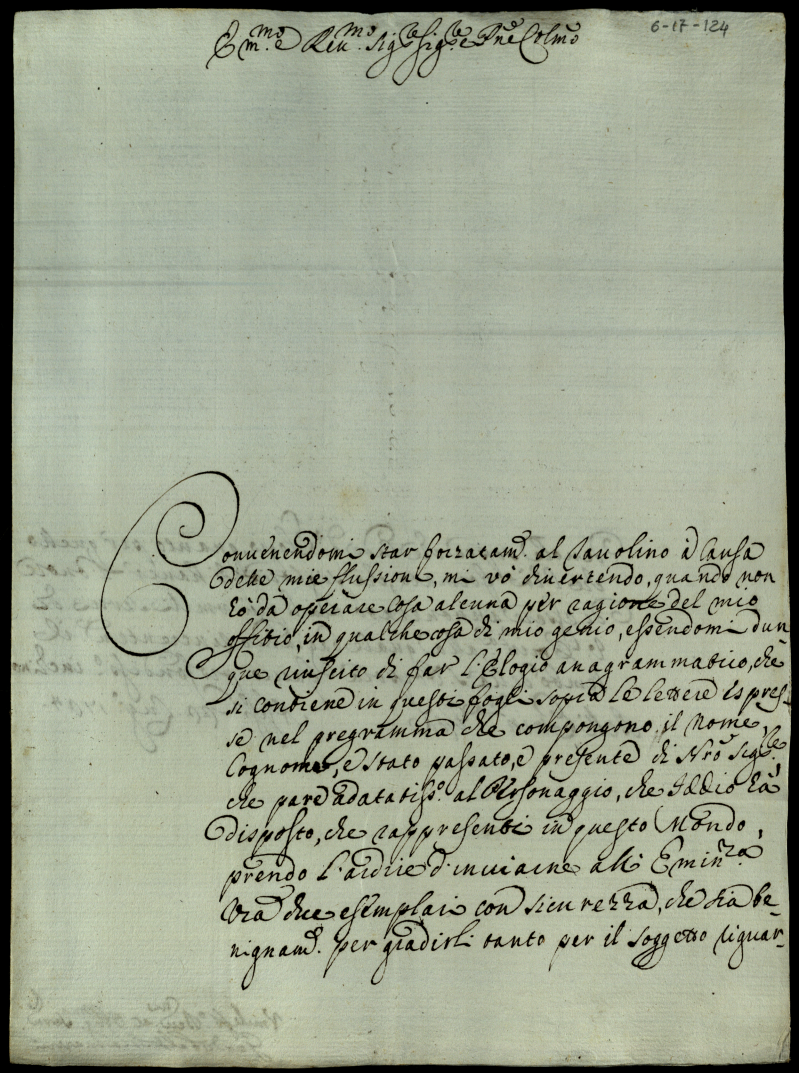 6-17-124
Em.mo e Reu.mo Sig.re Sig.re e Pne Colmo
Conuenendomi star forzatam.te al Tauolino à causa
delle mie flussioni, mi vò diuertendo, quando non
hò dà operare cosa alcuna per ragione del mio
offitio, in qualche cosa di mio genio, essendomi dun
que riuscito di far l'Elogio anagrammatico, che
si contiene in questi fogli sopra le lettere espres-
se nel programma che compongono il nome,
Cognome, e stato passato, e presente di Nrō Sig.re,
che pare adatatiss.o al Personaggio, che Iddio hà
disposto, che rappresenti in questo Mondo,
prendo l'ardire d'inuiarne all' Emin.za
Vrā due esemplari con sicurezza, che sia be-
nignam.te per gradirli tanto per il soggetto riguar-